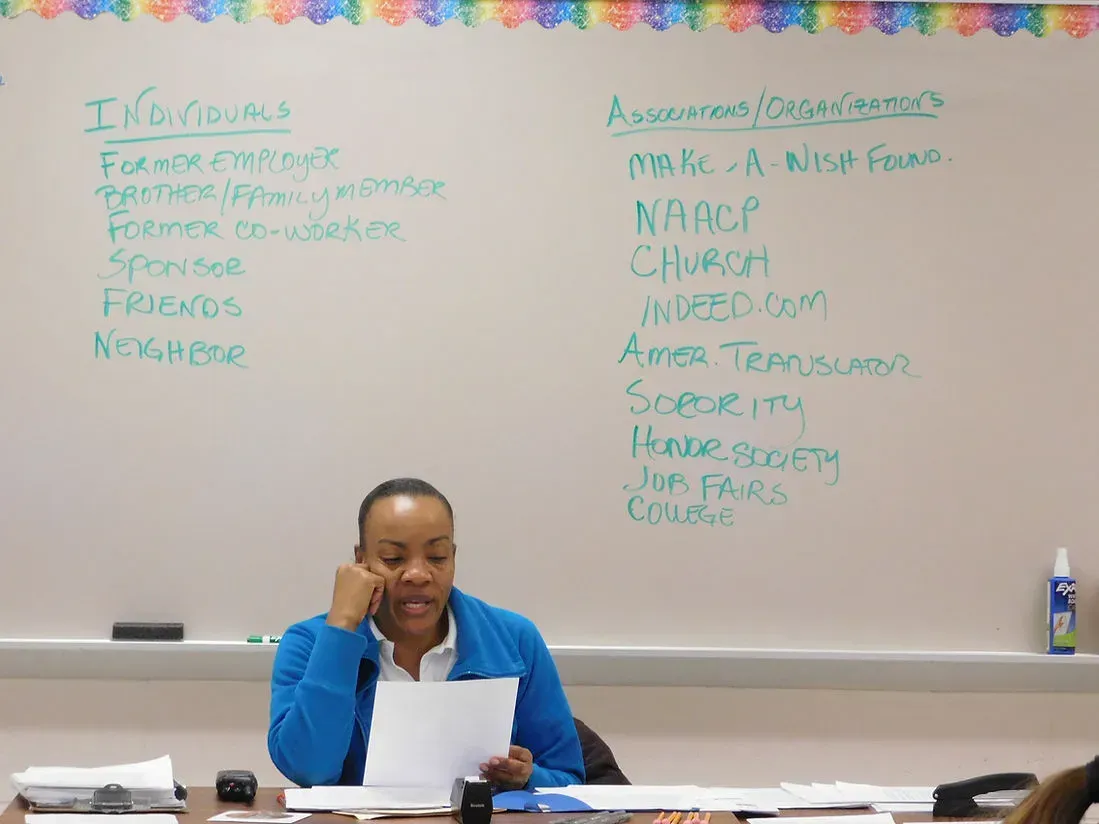 INDIVIDUALS
FORMER EMPLOYER
BROTHER/FAMILY MEMBER
FORMER CO-WORKER
SPONSOR
FRIENDS
NEIGHBOR
ASSOCIATIONS/ORGANIZATIONS
MAKE-A-WISH FOUND.
NAACP
CHURCH
INDEED.COM
AMER. TRANSLATOR
SORORITY
HONOR SOCIETY
JOB FAIRS
COLLEGE
Kodak